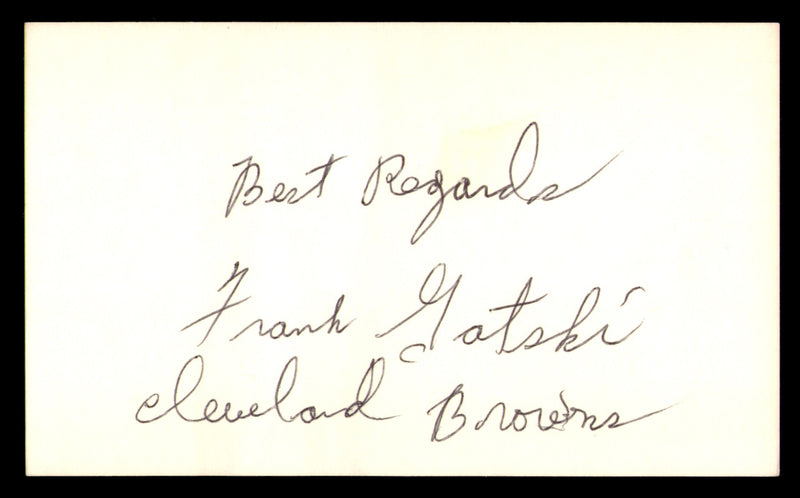 Best Regards
Frank Gatski
Cleveland Browns